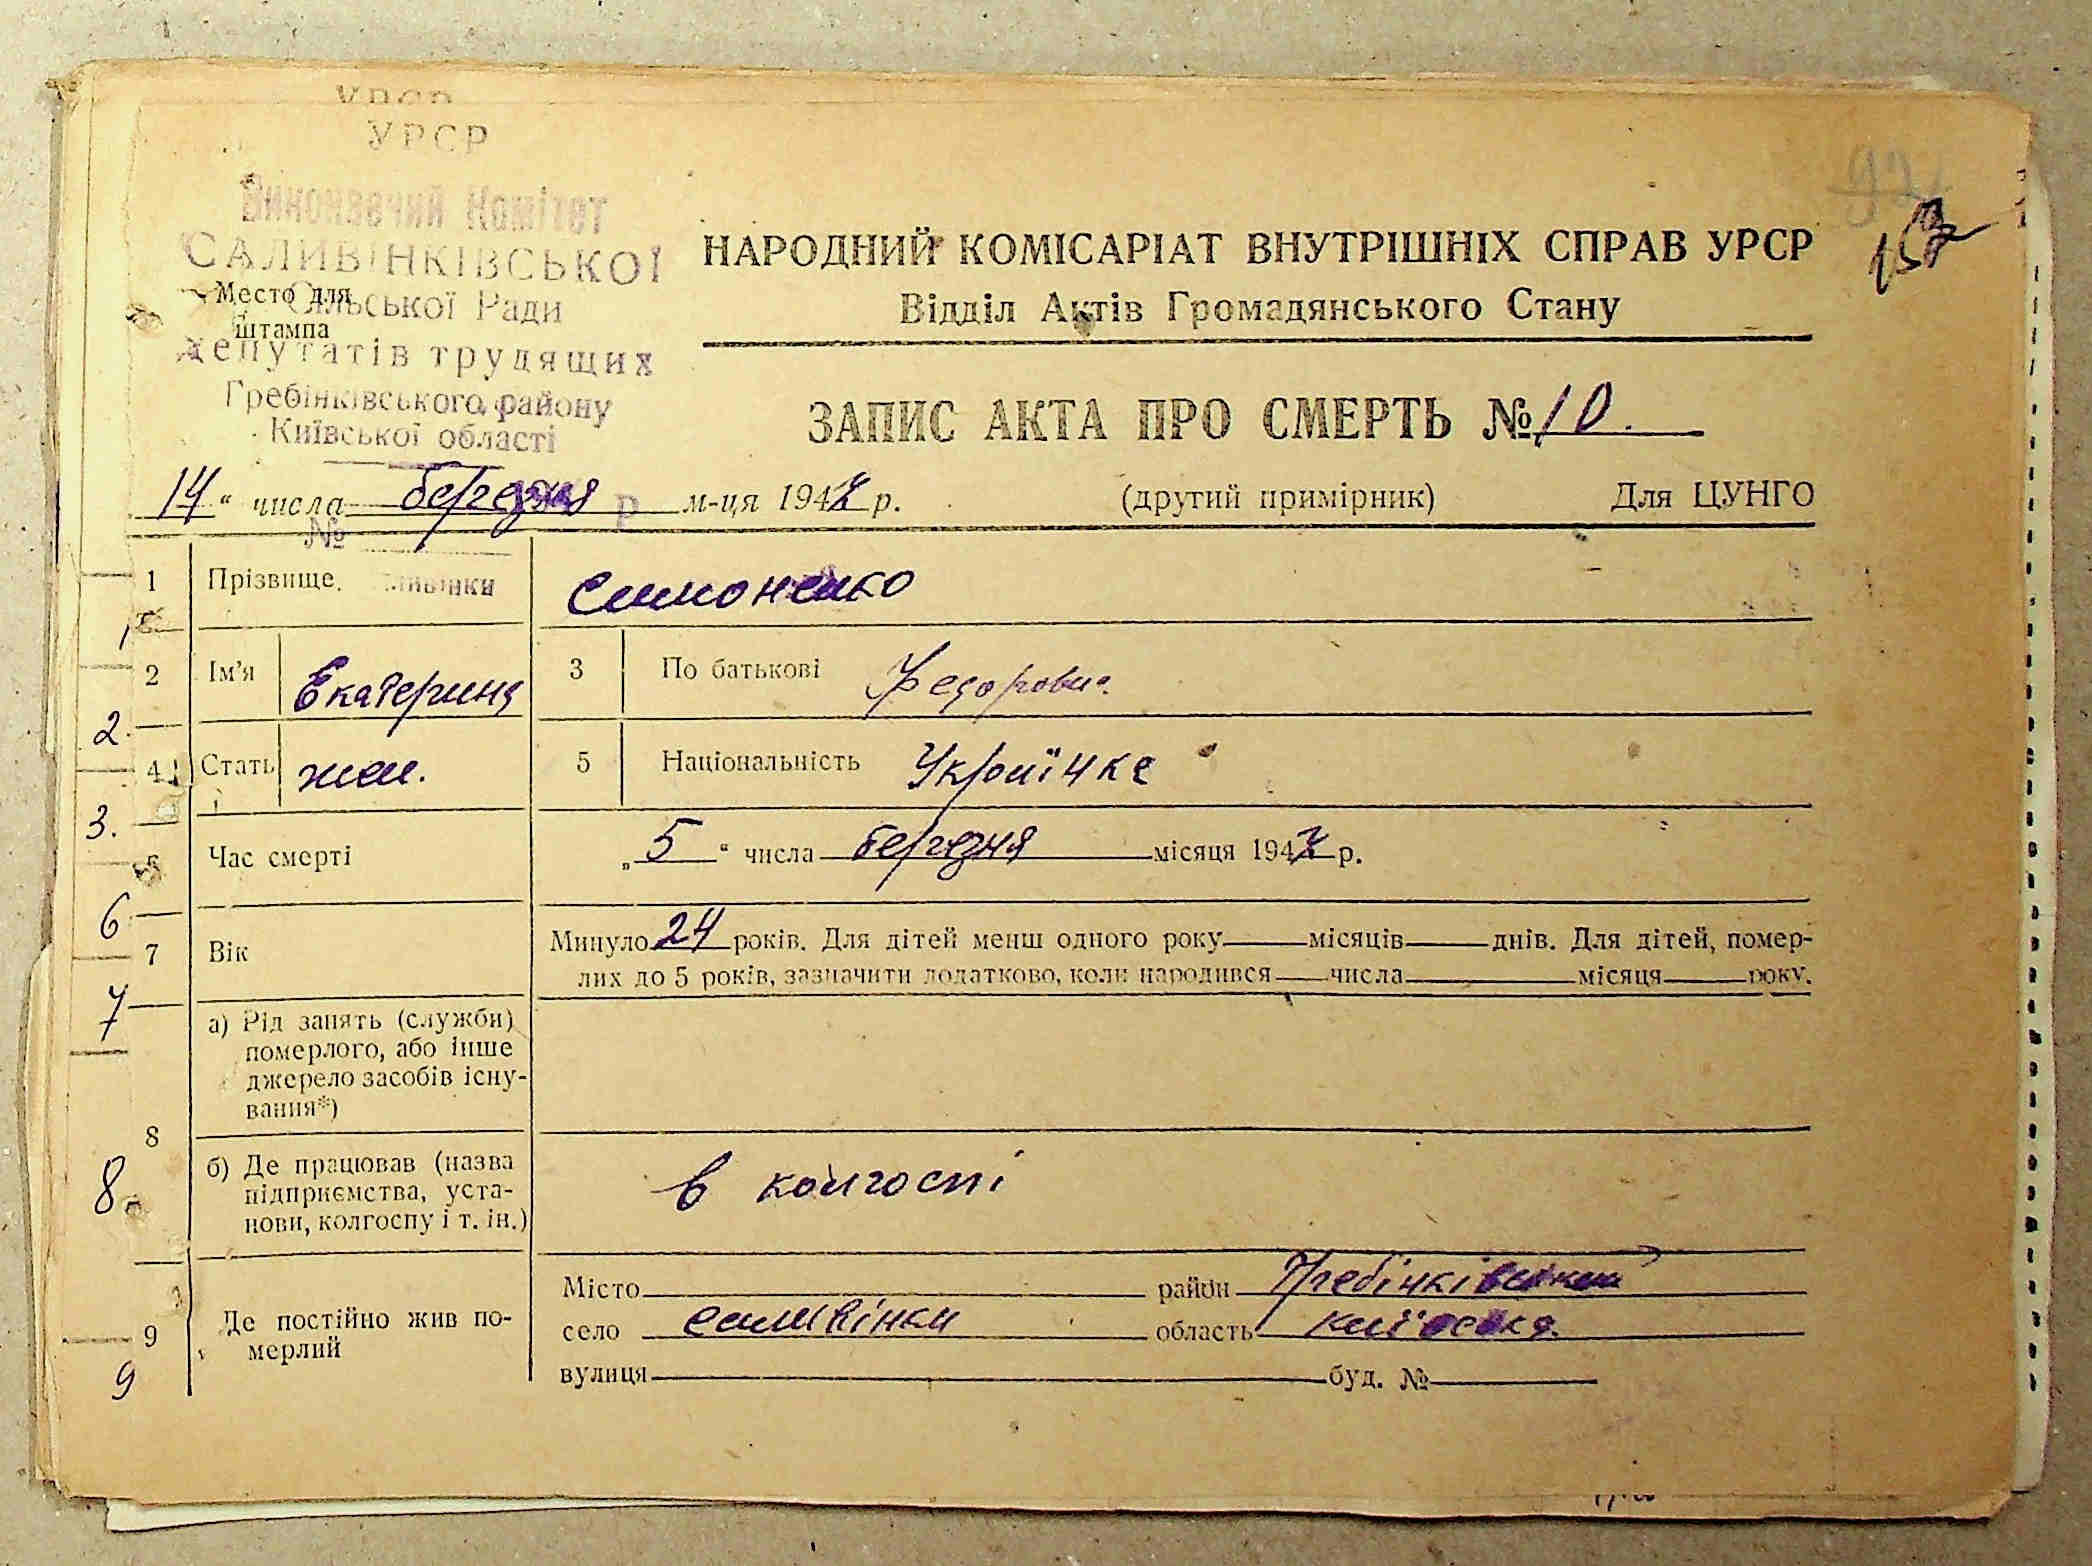 УРСР
УРСР
Виконавчий Комітет
САЛИВІНКІВСЬКОЇ
Сільської Ради
депутатів трудящих
Гребінківського району
Київської області
Место для
штампа
НАРОДНИЙ КОМІСАРІАТ ВНУТРІШНІХ СПРАВ УРСР
Відділ Актів Громадянського Стану
ЗАПИС АКТА ПРО СМЕРТЬ № 10.
14 " числа березня м-ця 1947 р. (другий примірник) Для ЦУНГО
№
1 Прізвище Симоненко
1
2 Ім'я Екатерина 3 По батькові Федоровна
2.
4 Стать жен. 5 Національність Українка
3.
5 Час смерті „ 5 " числа березня місяця 1947 р.
6
7 Вік Минуло 24 років. Для дітей менш одного року місяців днів. Для дітей, помер-
лих до 5 років, зазначити додатково, коли народився числа місяця року.
7
8 а) Рід занять (служби)
померлого, або інше
джерело засобів існу-
вання*)
8
б) Де працював (назва
підприємства, уста-
нови, колгоспу і т. ін.)
в колгоспі
9 Де постійно жив по-
мерлий
Місто район Гребінківський
село Саливінки область Київська
вулиця буд. №
9